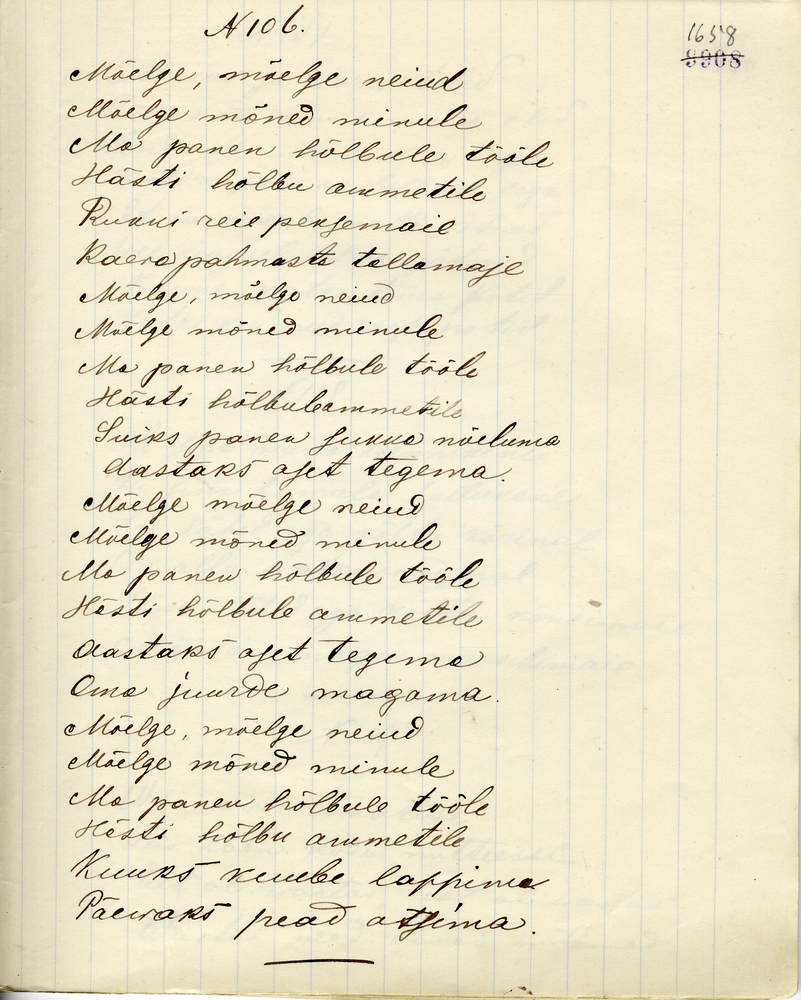 N 106.
1658
9908
Mõelge, mõelge neiud
Mõelge mõned minule
Ma panen hõlbule tööle
Hästi hõlbu ammetile
Rukki reie peksemaie
Kaera pahmasta tallamaje
Mõelge, mõelge neiud
Mõelge mõned minule
Ma panen hõlbule tööle
Hästi hõlbule ammetile
Suiks panen sukka nõeluma
Aastaks aset tegema.
Mõelge mõelge neiud
Mõelge mõned minule
Ma panen hõlbule tööle
Hästi hõlbule ammetile
Aastaks aset tegema
Oma juurde magama.
Mõelge, mõelge neiud
Mõelge mõned minule
Ma panen hõlbule tööle
Hästi hõlbu ammetile
Kuuks kuube lappima
Päewaks pead otsima.